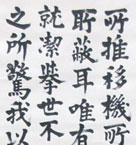 所推移機所
所蔽耳唯有
就潔挙世不
之所驚我以